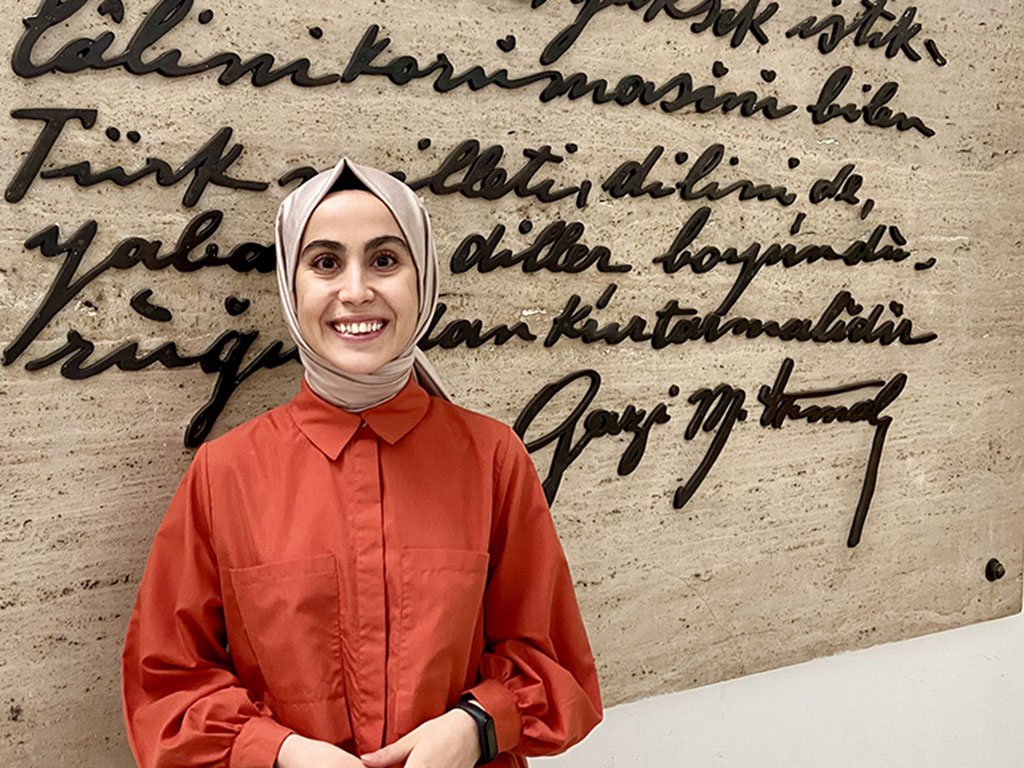 yüksek istik-
lâlini korumasini bilen
Türk milleti, dilini de,
yaba diller boyunduru-
ruğu dan kurtarmalidir
Gazi M. Kemal